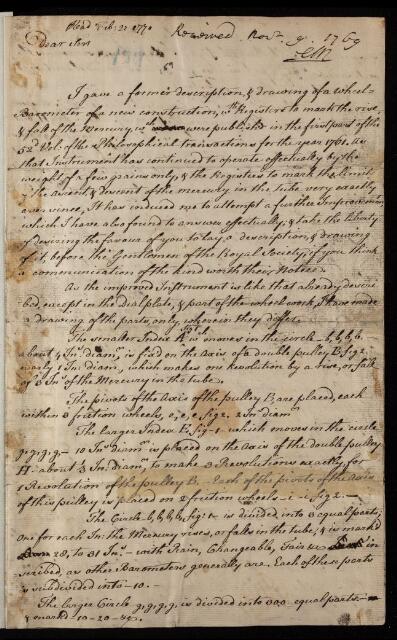 Read Feb: 22 1770
Received Nov.r 9. 1769
Dear Sir
I gave a former description, & drawing of a wheel-
Barometer of a new construction, wth Registers to mark the rise,
& fall of the Mercury, wch were publish'd in the first part of the
52d Vol: of the Philosophical transactions for the year 1761. As
that Instrument has continued to operate effectually by the
weight of a few grains only, & the Registers to mark the limit,
of the ascent & descent of the mercury in the tube very exactly
ever since, It has induced me to attempt a further Improvement
which I have also found to answer effectually; & take the Liberty
of desiring the favour of you to lay a description, & drawing
of it, before the Gentlemen of the Royal Society, if you think
a communication of the kind worth their Notice.
As the improved Instrument is like that already descri-
bed, except in the dial plate, & part of the wheel work, I have made
a drawing of the parts, only, wherein they differ.
The smaller Index moves in the circle b, b, b, b,
about 4 Ins diamr, is fix'd on the Axis of a double pulley B, fig 2.
nearly 1 In: diamr, which makes one Revolution by a rise, or fall
of 3 Ins of the Mercury in the tube.
The pivots of the Axis of the pulley B, are placed, each
within 3 friction wheels, e, e, e, fig 2. 2 In diamr
The larger Index E, fig 1. which moves in the circle
g, g, g, g, 10 Ins diamr is placed on the Axis of the double pulley
H. about In: diamr, to make 3 Revolutions exactly, for
1 Revolution of the pulley B. Each of the pivots of the Axis
of this pulley is placed on 2 friction wheels i i fig 2.
The Circle b, b, b, b, fig: 1. is divided into 3 equal parts;
one for each In: the Mercury rises, or falls in the tube, & is mark'd
28, to 31 Ins with Rain, Changeable, Fair &c in-
scribed, as other Barometers generally are. Each of these parts
is subdivided into 10.
The larger Circle g, g, g, g, is divided into 100 equal parts
& marked 10. 20. &c.